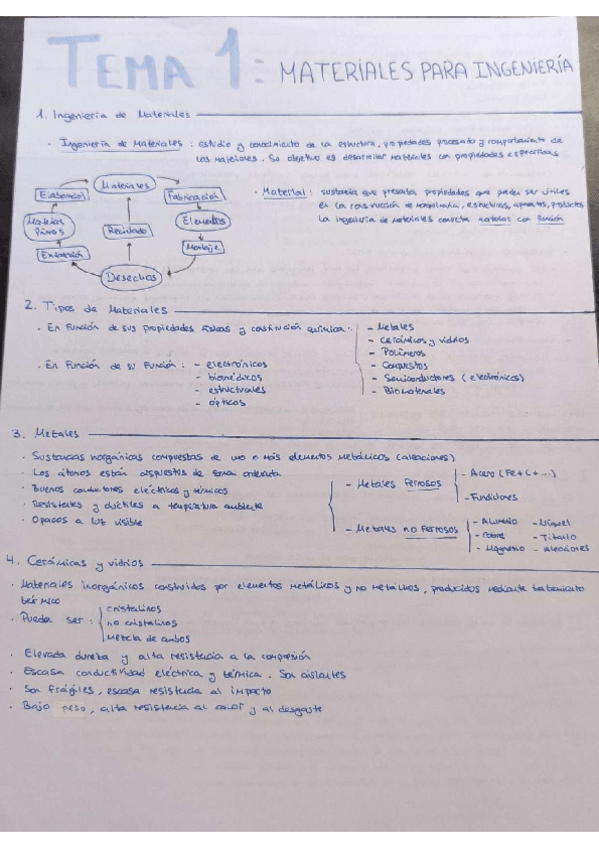 TEMA 1: MATERIALES PARA INGENIERÍA
1. Ingeniería de Materiales
· Ingeniería de Materiales : estudio y conocimiento de la estructura, propiedades procesado y comportamiento de
los materiales. Su objetivo es desarrollar materiales con propiedades específicas
Materiales
Fabricación
Elementos
Montaje
Desechos
Reciclado
Extracción
Materias
Primas
· Material : sustancia que presenta propiedades que pueden ser útiles
en la construcción de maquinaria, estructuras, aparatos, productos
La ingeniería de materiales conecta materias con función
2. Tipos de Materiales
· En Función de sus propiedades físicas y constitución química :
- Metales
- Cerámicos y vidrios
- Polímeros
- Compuestos
- Semiconductores (electrónicos)
- Biomateriales
· En Función de su Función : - electrónicos
- biomédicos
- estructurales
- ópticos
3. Metales
· Sustancias inorgánicas compuestas de uno o más elementos metálicos (aleaciones)
· Los átomos están dispuestos de forma ordenada
· Buenos conductores eléctricos y térmicos
· Resistentes y dúctiles a temperatura ambiente
· Opacos a luz visible
- Metales Ferrosos
- Acero (Fe+C+...)
- Fundiciones
- Metales no Ferrosos
- Aluminio - Níquel
- Cobre - Titanio
- Magnesio - Aleaciones
4. Cerámicas y vidrios
· Materiales inorgánicos constituidos por elementos metálicos y no metálicos, producidos mediante tratamiento
térmico
· Pueden ser : cristalinos
no cristalinos
mezcla de ambos
· Elevada dureza y alta resistencia a la compresión
· Escasa conductividad eléctrica y térmica. Son aislantes
· Son frágiles, escasa resistencia al impacto
· Bajo peso, alta resistencia al calor y al desgaste